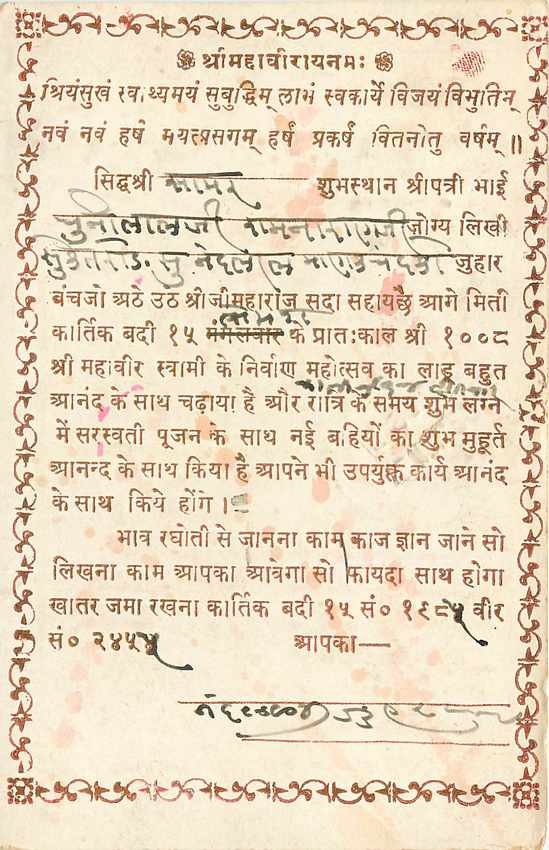 श्रीमहावीरायनमः
श्रियंसुखं स्वाथ्यमयं सुबुद्धिम् लाभं स्वकार्ये विजयं विभुतिम्
नवं नवं हर्षं हर्षं प्रकर्षं वितनोतु वर्षम् ॥
सिद्धश्री शुभस्थान श्रीपत्री भाई
चुनीलालजी जोग्य लिखी
जुहार
बंचजो अठे उठ श्रीजीमहाराज सदा सहायछै आगे मिती
कार्तिक बदी १५ मंगलवार के प्रातःकाल श्री १००८
श्री महावीर स्वामी के निर्वाण महोत्सव का लाडू बहुत
आनंद के साथ चढ़ाया है और रात्रि के समय शुभ लग्न
में सरस्वती पूजन के साथ नई बहियों का शुभ मुहूर्त
आनन्द के साथ किया है आपने भी उपर्युक्त कार्य आनंद
के साथ किये होंगे ।
भाव रघोती से जानना काम काज ज्ञान जाने सो
लिखना काम आपका आवेगा सो फायदा साथ होगा
खातर जमा रखना कार्तिक बदी १५ सं० १९८५ वीर
सं० २४५५ आपका—